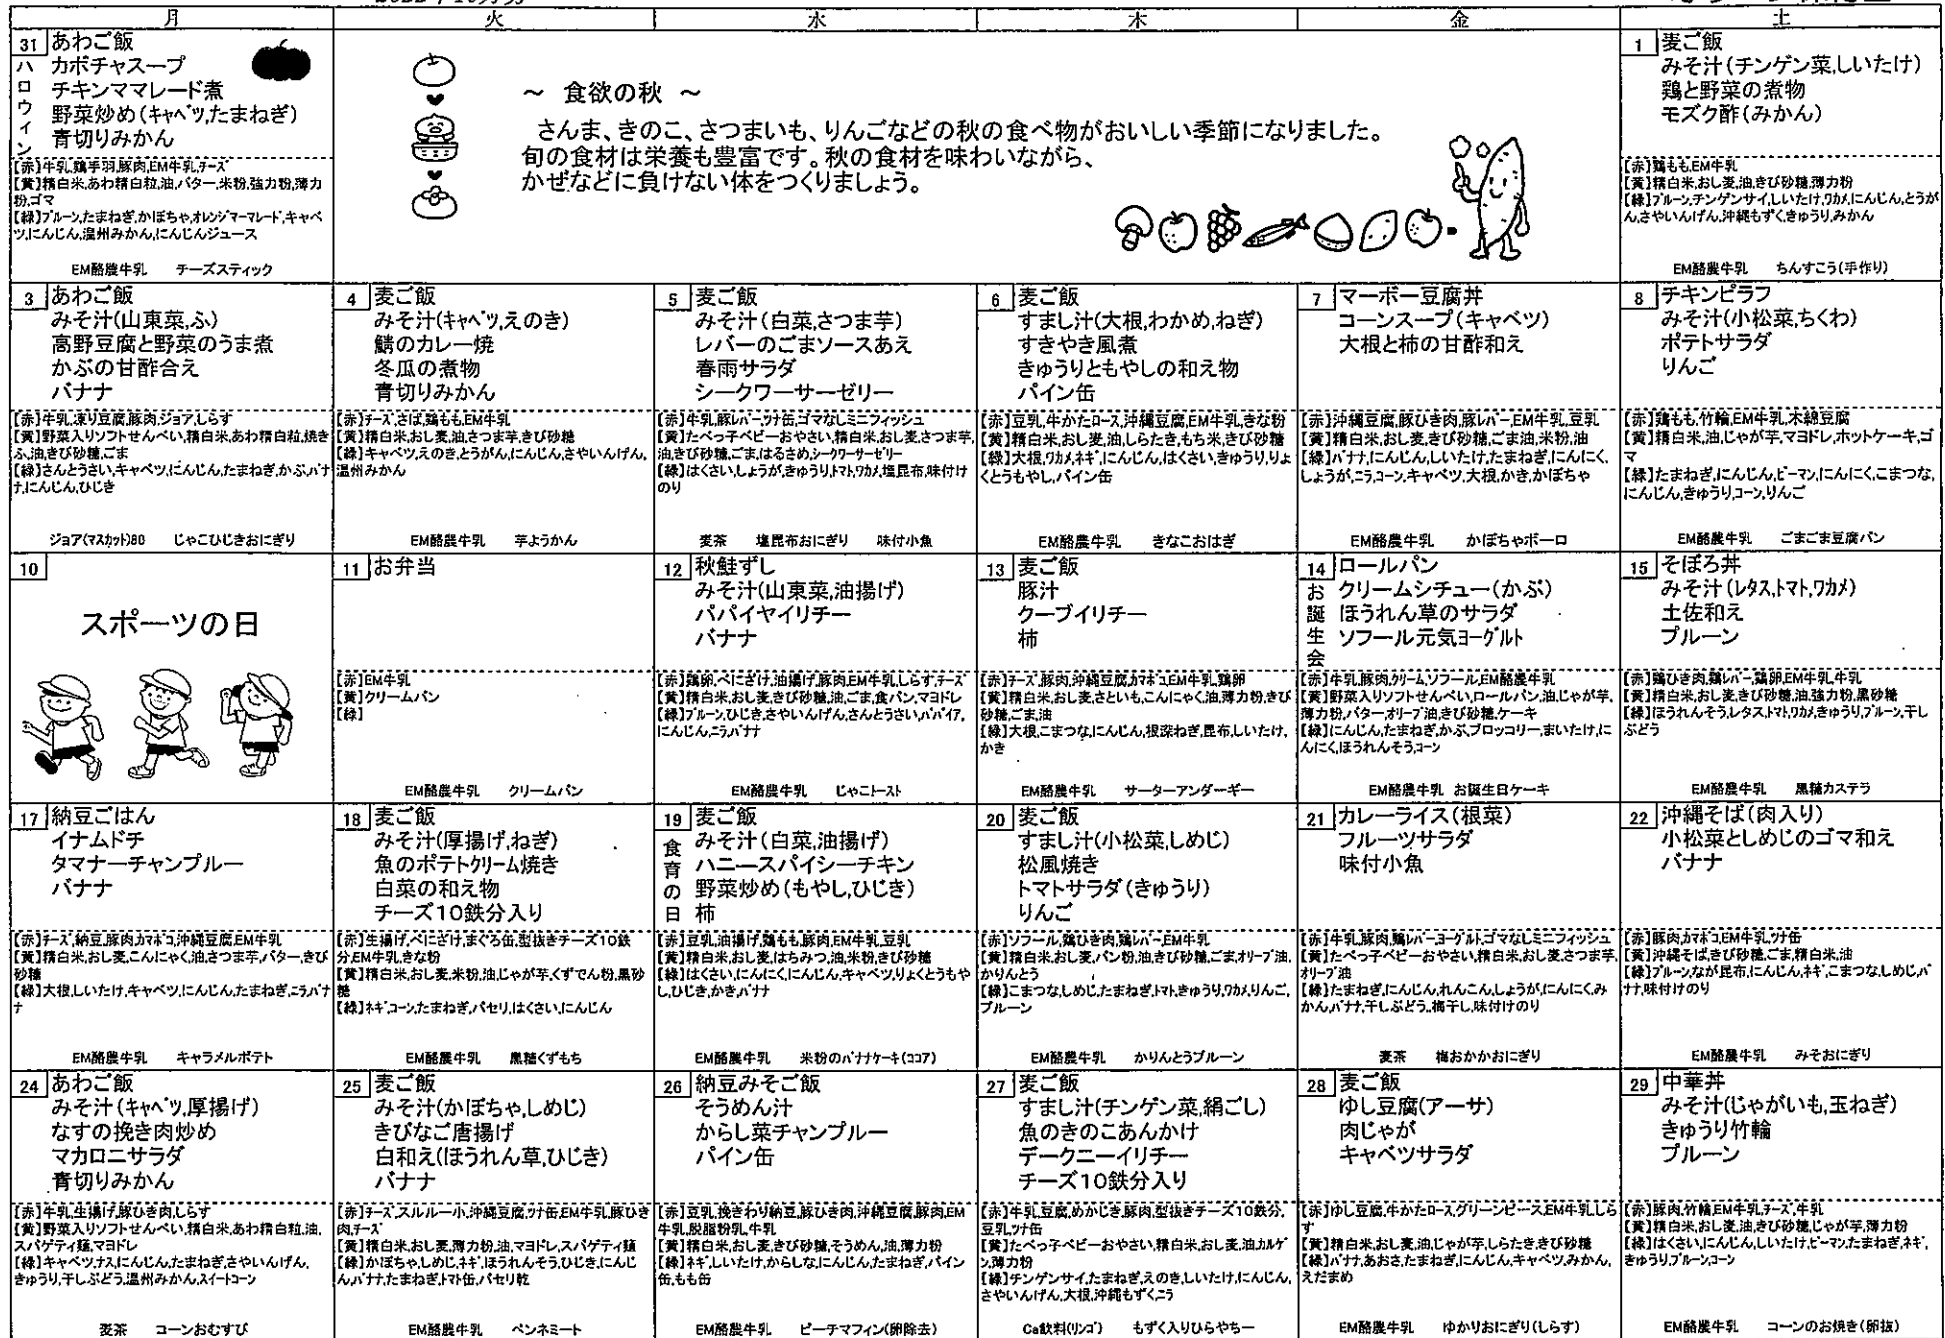 月 火 水 木 金 土
31 あわご飯
ハロウィン
カボチャスープ
チキンママレード煮
野菜炒め(キャベツ,たまねぎ)
青切りみかん
【赤】牛乳,鶏手羽,豚肉,EM牛乳,チーズ
【黄】精白米,あわ精白粒,油,バター,米粉,強力粉,薄力
粉,ゴマ
【緑】プルーン,たまねぎ,かぼちゃ,オレンジマーマレード,キャベ
ツ,にんじん,温州みかん,にんじんジュース
EM酪農牛乳 チーズスティック
～ 食欲の秋 ～
さんま、きのこ、さつまいも、りんごなどの秋の食べ物がおいしい季節になりました。
旬の食材は栄養も豊富です。秋の食材を味わいながら、
かぜなどに負けない体をつくりましょう。
1 麦ご飯
みそ汁(チンゲン菜,しいたけ)
鶏と野菜の煮物
モズク酢(みかん)
【赤】鶏もも,EM牛乳
【黄】精白米,おし麦,油,きび砂糖,薄力粉
【緑】プルーン,チンゲンサイ,しいたけ,ワカメ,にんじん,とうが
ん,さやいんげん,沖縄もずく,きゅうり,みかん
EM酪農牛乳 ちんすこう(手作り)
3 あわご飯
みそ汁(山東菜,ふ)
高野豆腐と野菜のうま煮
かぶの甘酢合え
バナナ
【赤】牛乳,凍り豆腐,豚肉,ジョア,しらす
【黄】野菜入りソフトせんべい,精白米,あわ精白粒,焼き
ふ,油,きび砂糖,ごま
【緑】さんとうさい,キャベツ,にんじん,たまねぎ,かぶ,バナ
ナ,にんじん,ひじき
ジョア(マスカット)80 じゃこひじきおにぎり
4 麦ご飯
みそ汁(キャベツ,えのき)
鯖のカレー焼
冬瓜の煮物
青切りみかん
【赤】チーズ,さば,鶏もも,EM牛乳
【黄】精白米,おし麦,油,さつま芋,きび砂糖
【緑】キャベツ,えのき,とうがん,にんじん,さやいんげん,
温州みかん
EM酪農牛乳 芋ようかん
5 麦ご飯
みそ汁(白菜,さつま芋)
レバーのごまソースあえ
春雨サラダ
シークワーサーゼリー
【赤】牛乳,豚レバー,ツナ缶,ゴマなしミニフィッシュ
【黄】たべっ子ベビーおやさい,精白米,おし麦,さつま芋,
油,きび砂糖,ごま,はるさめ,シークワーサーゼリー
【緑】はくさい,しょうが,きゅうり,トマト,ワカメ,塩昆布,味付け
のり
麦茶 塩昆布おにぎり 味付小魚
6 麦ご飯
すまし汁(大根,わかめ,ねぎ)
すきやき風煮
きゅうりともやしの和え物
パイン缶
【赤】豆乳,牛かたロース,沖縄豆腐,EM牛乳,きな粉
【黄】精白米,おし麦,油,しらたき,もち米,きび砂糖
【緑】大根,ワカメ,ネギ,にんじん,はくさい,きゅうり,りょ
くとうもやし,パイン缶
EM酪農牛乳 きなこおはぎ
7 マーボー豆腐丼
コーンスープ(キャベツ)
大根と柿の甘酢和え
【赤】沖縄豆腐,豚ひき肉,豚レバー,EM牛乳,豆乳
【黄】精白米,おし麦,きび砂糖,ごま油,米粉,油
【緑】バナナ,にんじん,しいたけ,たまねぎ,にんにく,
しょうが,ニラ,コーン,キャベツ,大根,かき,かぼちゃ
EM酪農牛乳 かぼちゃボーロ
8 チキンピラフ
みそ汁(小松菜,ちくわ)
ポテトサラダ
りんご
【赤】鶏もも,竹輪,EM牛乳,木綿豆腐
【黄】精白米,油,じゃが芋,マヨドレ,ホットケーキ,ゴ
マ
【緑】たまねぎ,にんじん,ピーマン,にんにく,こまつな,
にんじん,きゅうり,コーン,りんご
EM酪農牛乳 ごまごま豆腐パン
10
スポーツの日
11 お弁当
【赤】EM牛乳
【黄】クリームパン
【緑】
EM酪農牛乳 クリームパン
12 秋鮭ずし
みそ汁(山東菜,油揚げ)
パパイヤイリチー
バナナ
【赤】鶏卵,べにざけ,油揚げ,豚肉,EM牛乳,しらす,チーズ
【黄】精白米,おし麦,きび砂糖,油,ごま,食パン,マヨドレ
【緑】プルーン,ひじき,さやいんげん,さんとうさい,パパイア,
にんじん,ニラ,バナナ
EM酪農牛乳 じゃこトースト
13 麦ご飯
豚汁
クーブイリチー
柿
【赤】チーズ,豚肉,沖縄豆腐,カマボコ,EM牛乳,鶏卵
【黄】精白米,おし麦,さといも,こんにゃく,油,薄力粉,きび
砂糖,ごま,油
【緑】大根,こまつな,にんじん,根深ねぎ,昆布,しいたけ,
かき
EM酪農牛乳 サーターアンダーギー
14 ロールパン
お誕生会
クリームシチュー(かぶ)
ほうれん草のサラダ
ソフール元気ヨーグルト
【赤】牛乳,豚肉,クリーム,ソフール,EM酪農牛乳
【黄】野菜入りソフトせんべい,ロールパン,油,じゃが芋,
薄力粉,バター,オリーブ油,きび砂糖,ケーキ
【緑】にんじん,たまねぎ,かぶ,ブロッコリー,まいたけ,に
んにく,ほうれんそう,コーン
EM酪農牛乳 お誕生日ケーキ
15 そぼろ丼
みそ汁(レタス,トマト,ワカメ)
土佐和え
プルーン
【赤】鶏ひき肉,鶏レバー,鶏卵,EM牛乳,牛乳
【黄】精白米,おし麦,きび砂糖,油,強力粉,黒砂糖
【緑】ほうれんそう,レタス,トマト,ワカメ,きゅうり,プルーン,干し
ぶどう
EM酪農牛乳 黒糖カステラ
17 納豆ごはん
イナムドチ
タマナーチャンプルー
バナナ
【赤】チーズ,納豆,豚肉,カマボコ,沖縄豆腐,EM牛乳
【黄】精白米,おし麦,こんにゃく,油,さつま芋,バター,きび
砂糖
【緑】大根,しいたけ,キャベツ,にんじん,たまねぎ,ニラ,バナ
ナ
EM酪農牛乳 キャラメルポテト
18 麦ご飯
みそ汁(厚揚げ,ねぎ)
魚のポテトクリーム焼き
白菜の和え物
チーズ10鉄分入り
【赤】生揚げ,べにざけ,まぐろ缶,型抜きチーズ10鉄
分,EM牛乳,きな粉
【黄】精白米,おし麦,米粉,油,じゃが芋,くずでん粉,黒砂
糖
【緑】ネギ,コーン,たまねぎ,パセリ,はくさい,にんじん
EM酪農牛乳 黒糖くずもち
19 麦ご飯
食育の日
みそ汁(白菜,油揚げ)
ハニースパイシーチキン
野菜炒め(もやし,ひじき)
柿
【赤】豆乳,油揚げ,鶏もも,豚肉,EM牛乳,豆乳
【黄】精白米,おし麦,はちみつ,油,米粉,きび砂糖
【緑】はくさい,にんにく,にんじん,キャベツ,りょくとうもや
し,ひじき,かき,バナナ
EM酪農牛乳 米粉のバナナケーキ(ココア)
20 麦ご飯
すまし汁(小松菜,しめじ)
松風焼き
トマトサラダ(きゅうり)
りんご
【赤】ソフール,鶏ひき肉,鶏レバー,EM牛乳
【黄】精白米,おし麦,パン粉,油,きび砂糖,ごま,オリーブ油,
かりんとう
【緑】こまつな,しめじ,たまねぎ,トマト,きゅうり,ワカメ,りんご,
プルーン
EM酪農牛乳 かりんとうプルーン
21 カレーライス(根菜)
フルーツサラダ
味付小魚
【赤】牛乳,豚肉,鶏レバー,ヨーグルト,ゴマなしミニフィッシュ
【黄】たべっ子ベビーおやさい,精白米,おし麦,さつま芋,
オリーブ油
【緑】たまねぎ,にんじん,れんこん,しょうが,にんにく,み
かん,バナナ,干しぶどう,梅干し,味付けのり
麦茶 梅おかかおにぎり
22 沖縄そば(肉入り)
小松菜としめじのゴマ和え
バナナ
【赤】豚肉,カマボコ,EM牛乳,ツナ缶
【黄】沖縄そば,きび砂糖,ごま,精白米,油
【緑】プルーン,なが昆布,にんじん,ネギ,こまつな,しめじ,バ
ナナ,味付けのり
EM酪農牛乳 みそおにぎり
24 あわご飯
みそ汁(キャベツ,厚揚げ)
なすの挽き肉炒め
マカロニサラダ
青切りみかん
【赤】牛乳,生揚げ,豚ひき肉,しらす
【黄】野菜入りソフトせんべい,精白米,あわ精白粒,油,
スパゲティ麺,マヨドレ
【緑】キャベツ,ナス,にんじん,たまねぎ,さやいんげん,
きゅうり,干しぶどう,温州みかん,スイートコーン
麦茶 コーンおむすび
25 麦ご飯
みそ汁(かぼちゃ,しめじ)
きびなご唐揚げ
白和え(ほうれん草,ひじき)
バナナ
【赤】チーズ,スルルー小,沖縄豆腐,ツナ缶,EM牛乳,豚ひき
肉,チーズ
【黄】精白米,おし麦,薄力粉,油,マヨドレ,スパゲティ麺
【緑】かぼちゃ,しめじ,ネギ,ほうれんそう,ひじき,にんじ
ん,バナナ,たまねぎ,トマト缶,パセリ乾
EM酪農牛乳 ペンネミート
26 納豆みそご飯
そうめん汁
からし菜チャンプルー
パイン缶
【赤】豆乳,挽きわり納豆,豚ひき肉,沖縄豆腐,豚肉,EM
牛乳,脱脂粉乳,牛乳
【黄】精白米,おし麦,きび砂糖,そうめん,油,薄力粉
【緑】ネギ,しいたけ,からしな,にんじん,たまねぎ,パイン
缶,もも缶
EM酪農牛乳 ピーチマフィン(卵除去)
27 麦ご飯
すまし汁(チンゲン菜,絹ごし)
魚のきのこあんかけ
デークニーイリチー
チーズ10鉄分入り
【赤】牛乳,豆腐,めかじき,豚肉,型抜きチーズ10鉄分,
豆乳,ツナ缶
【黄】たべっ子ベビーおやさい,精白米,おし麦,油,カルゲ
ン,薄力粉
【緑】チンゲンサイ,たまねぎ,えのき,しいたけ,にんじん,
さやいんげん,大根,沖縄もずく,ニラ
Ca飲料(リンゴ) もずく入りひらやちー
28 麦ご飯
ゆし豆腐(アーサ)
肉じゃが
キャベツサラダ
【赤】ゆし豆腐,牛かたロース,グリーンピース,EM牛乳,しら
す
【黄】精白米,おし麦,油,じゃが芋,しらたき,きび砂糖
【緑】バナナ,あおさ,たまねぎ,にんじん,キャベツ,みかん,
えだまめ
EM酪農牛乳 ゆかりおにぎり(しらす)
29 中華丼
みそ汁(じゃがいも,玉ねぎ)
きゅうり竹輪
プルーン
【赤】豚肉,竹輪,EM牛乳,チーズ,牛乳
【黄】精白米,おし麦,油,きび砂糖,じゃが芋,薄力粉
【緑】はくさい,にんじん,しいたけ,ピーマン,たまねぎ,ネギ,
きゅうり,プルーン,コーン
EM酪農牛乳 コーンのお焼き(卵抜)